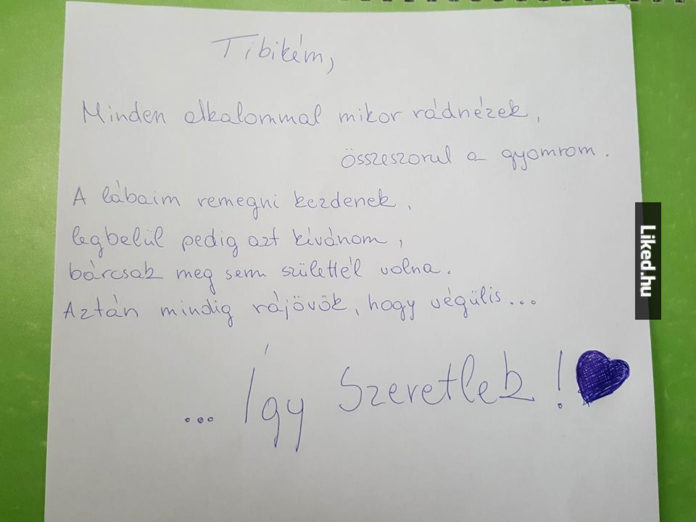 Tibikém,
Minden alkalommal mikor rádnézek,
összeszorul a gyomrom.
A lábaim remegni kezdenek,
legbelül pedig azt kívánom,
bárcsak meg sem születtél volna.
Aztán mindig rájövök, hogy végülis...
... Így Szeretlek!
Liked.hu